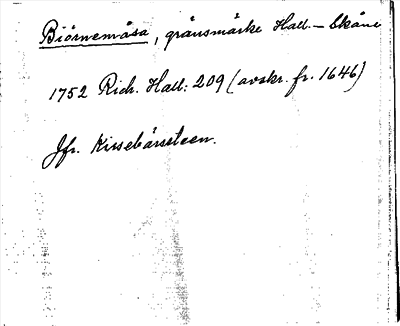 Biörnemåsa, gränsmärke Hall. – Skåne
1752 Rich. Hall: 209 (avskr. fr. 1646)
Jfr. Kirsebärsteen.